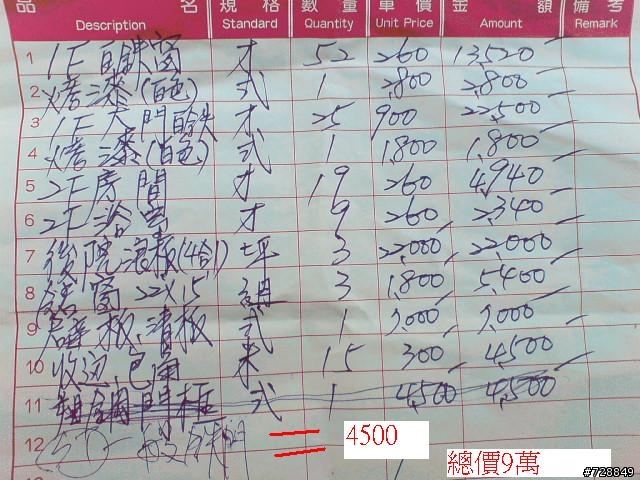 品 規格 數量 單價 金額 備考
Description Standard Quantity Unit Price Amount Remark
1 1F白鐵窗 才 52 260 13,520
2 烤漆(白色) 式 1 2,800 2,800
3 1F大門白鐵 才 25 900 22,500
4 烤漆(白色) 式 1 1,800 1,800
5 2F房間 才 19 260 4,940
6 2F浴室 才 9 260 2,340
7 後院 板(4合1) 坪 3 22,000 22,000
8 窗 22X15 組 3 1,800 5,400
9 板、清板 式 1 3,000 3,000
10 收边、包角 米 15 300 4,500
11 鋁門框 式 1 4,500 4,500
12
4500
總價9萬
#728849